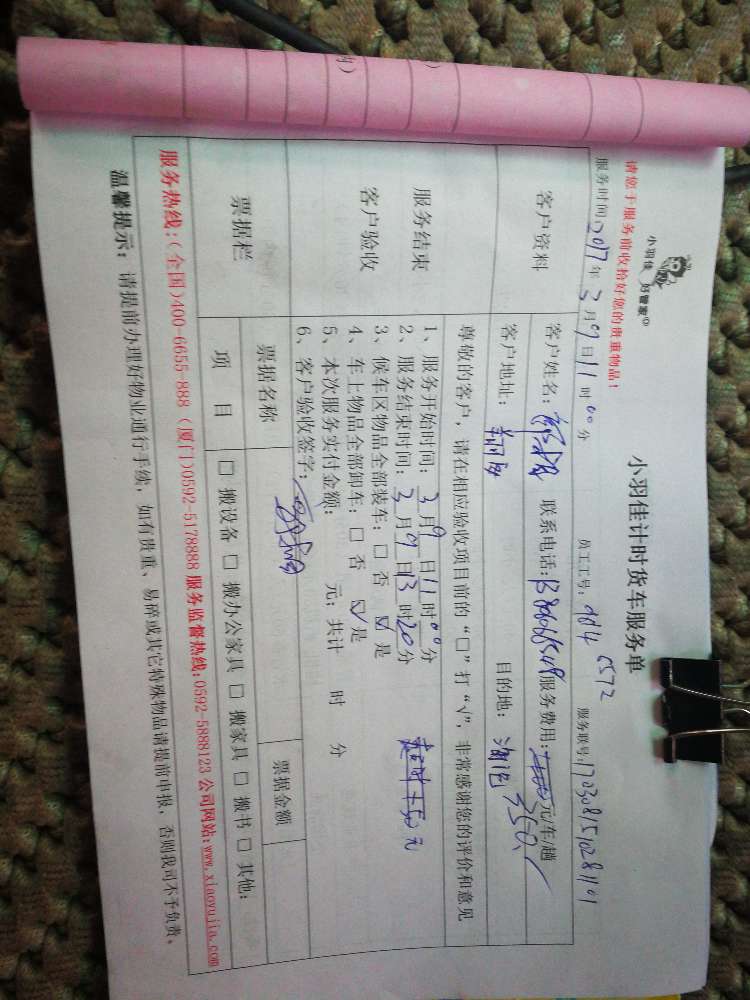 小羽佳 好管家©
小羽佳计时货车服务单
请您于服务前收拾好您的贵重物品！
服务时间: 2017 年 3 月 9 日 11 时 00 分 员工工号: 5572 服务联号: 1703081510281101
客户资料
客户姓名: 联系电话: 服务费用: 元/车/趟
350
客户地址: 目的地:
服务结束
客户验收
尊敬的客户，请在相应验收项目前的“□”打“√”，非常感谢您的评价和意见
1、服务开始时间: 3 月 9 日 11 时 00 分
2、服务结束时间: 3 月 9 日 13 时 20 分
3、候车区物品全部装车: □ 否 ☑ 是
4、车上物品全部卸车: □ 否 ☑ 是
5、本次服务实付金额: 元; 共计 时 分
6、客户验收签字:
超时+50元
票据栏
票据名称
票据金额
项 目
□ 搬设备 □ 搬办公家具 □ 搬家具 □ 搬书 □ 其他:
服务热线:(全国)400-6655-888 (厦门)0592-5178888 服务监督热线:0592-5888123 公司网站:www.xiaoyujia.com
温馨提示: 请提前办理好物业通行手续，如有贵重、易碎或其它特殊物品请提前申报，否则我司不予负责。